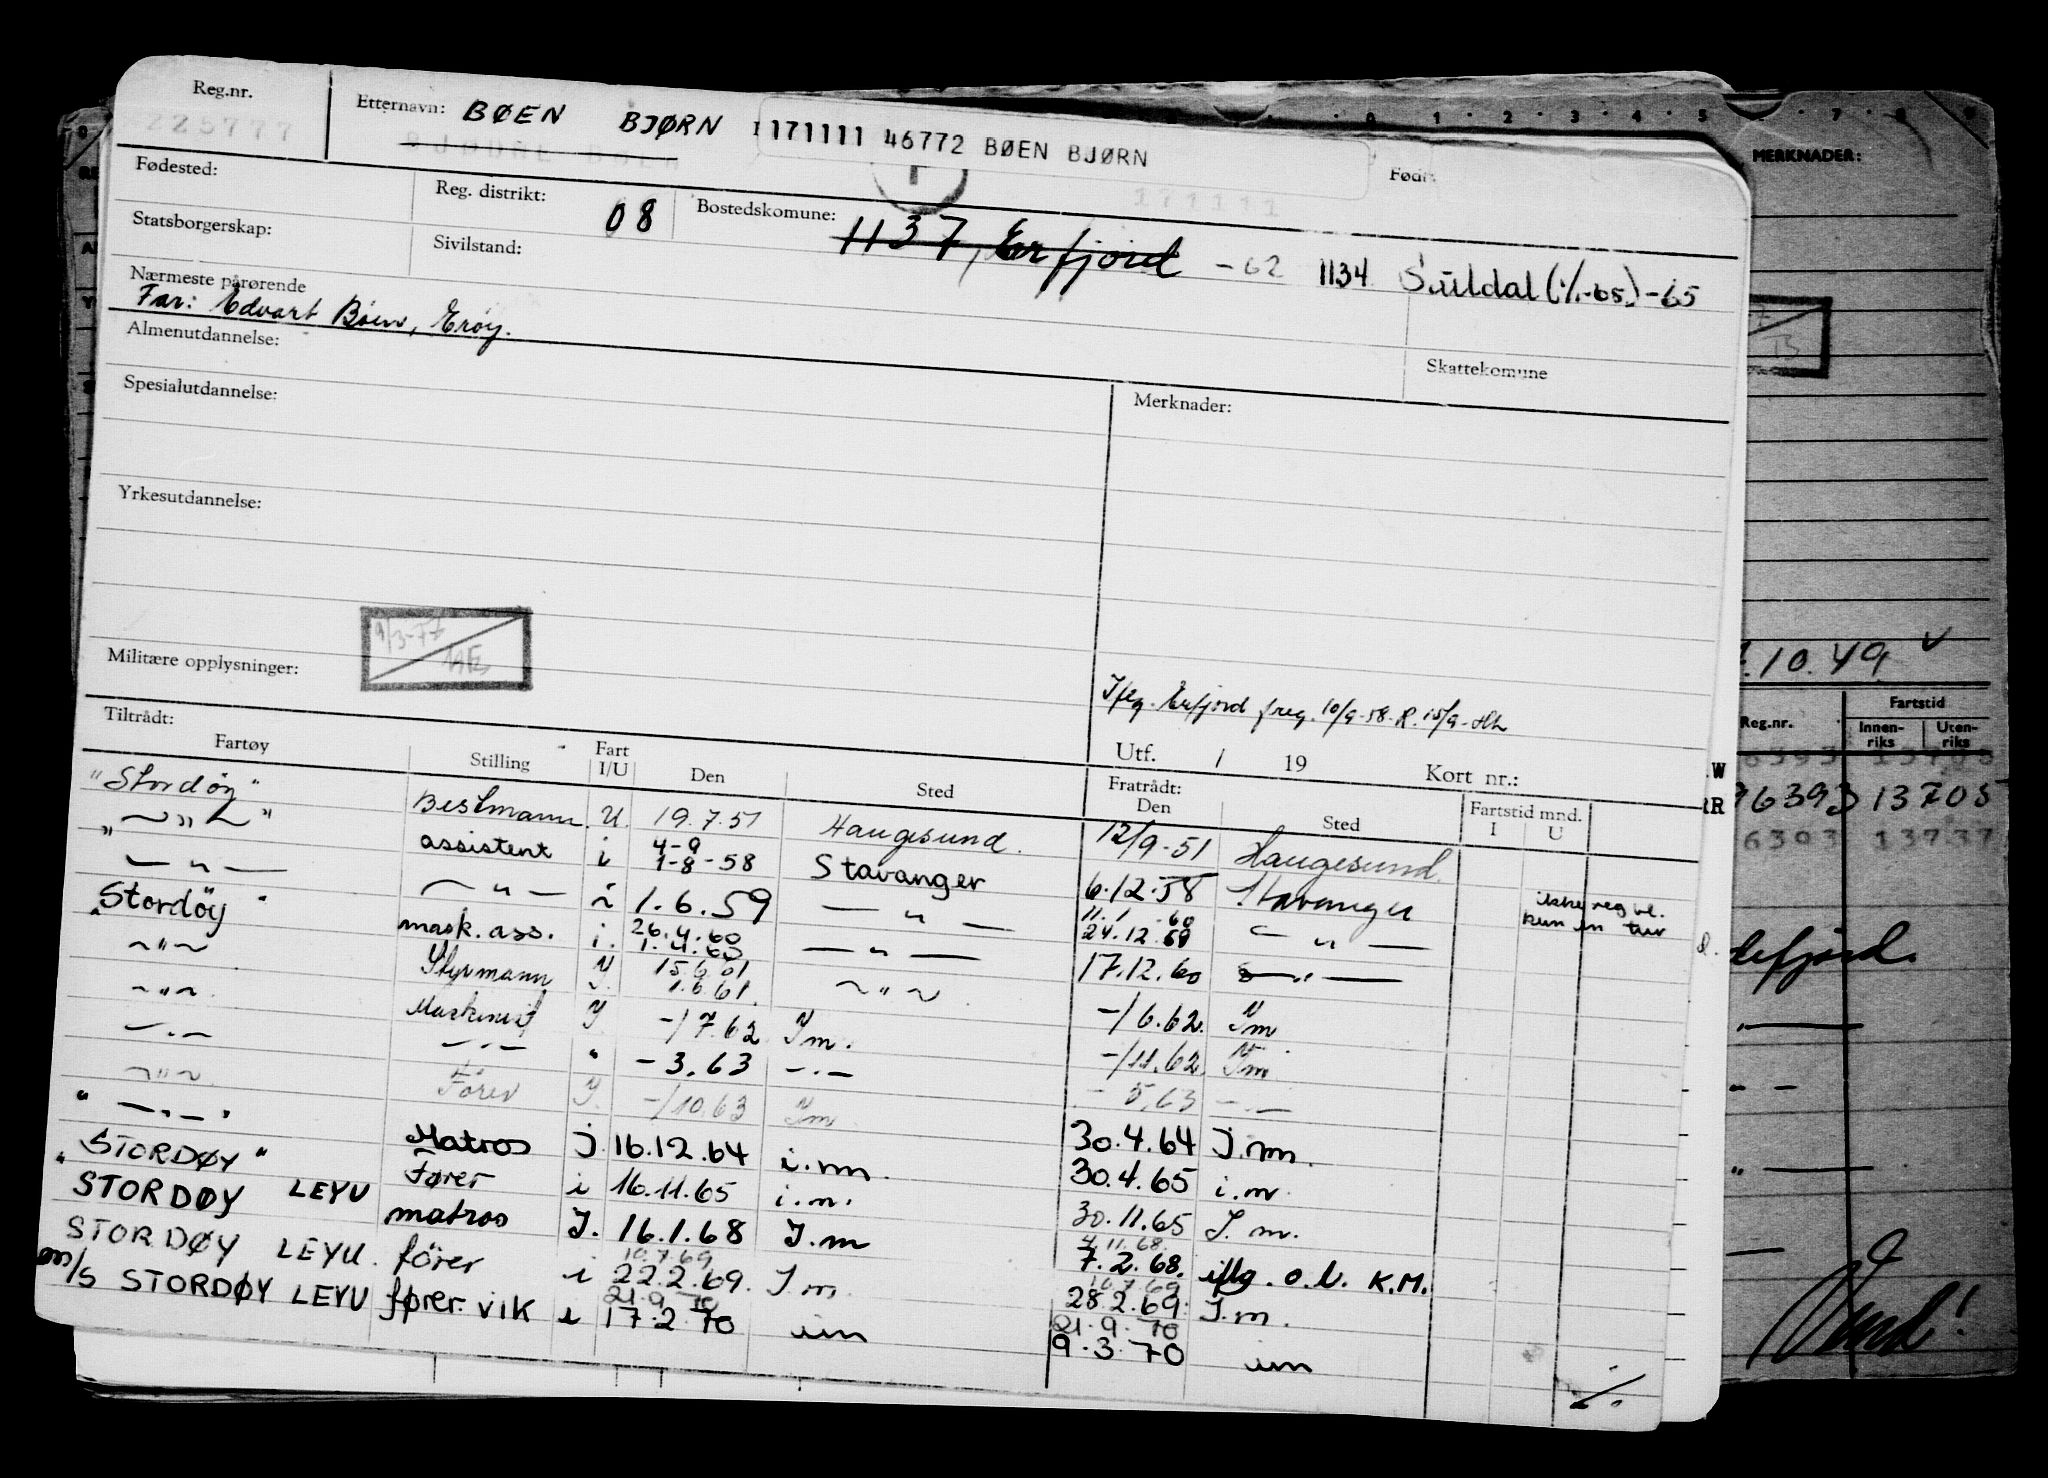 Reg.nr.
225777
Etternavn: BØEN BJØRN
171111 46772 BØEN BJØRN
Født:
171111
Fødested:
Reg. distrikt: 08
Bostedskomune: 1137, Erfjord -62 1134 Suldal (1/1-65) -65
Statsborgerskap:
Sivilstand:
Nærmeste pårørende
Far: Edvart Bøen, Erøy.
Almenutdannelse:
Skattekomune
Spesialutdannelse:
Merknader:
Yrkesutdannelse:
9/3-77
Militære opplysninger:
Ifлg. Erfjord freg. 10/9-58. R. 15/9-
Tiltrådt:
Utf. / 19 Kort nr.:
Fartøy Stilling Fart I/U Den Sted Fratrådt: Den Sted Fartstid mnd. I U
"Stordøy" Bestmann. U. 19.7.51 Haugesund. 12/9-51 Haugesund.
" — " — " assistent i 4-9 1-8-58 Stavanger 6.12.58 Stavanger ikke reg bl. kun en tur
— " — — " — i 1.6.59 — " — 11.1-60 24.12.59 — " —
"Stordöy" mask. ass. i. 26.4.60 1.4.60 — " — 17.12.60 — " —
— " — Styrmann I 15.6.61 1.6.61. — " — -/6.62. Im
— " — Maskinist I -/7.62 Im. -/11.62. Im
— " — — " — " -3.63 — " — -5.63 — " —
— " — Fører I. -/10.63 Im 30.4.64 I.m.
" — " — " Matros I 16.12.64 i.m. 30.4.65 i.m.
"STORDØY" Fører i 16.11.65 i.m. 30.11.65 I.m.
STORDØY LEYU matros I. 16.1.68 I.m 7.2.68. iflg. o.l. K.M.
4.11.68.
STORDØY LEYU. förer i 22.2.69. I.m. 28.2.69. I.m.
10.7.69 16.7.69
m/S STORDØY LEYU fører. VIK i 17.2.70 im 9.3.70 im
21.9.70 21.9.70
0 1 2 3 4 5 7 8 9
MERKNADER:
.10.49.
Reg.nr. Fartstid
Innenriks Utenriks
96393 13705
6393 13737